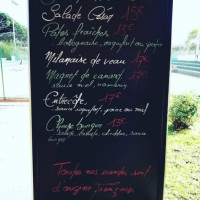 Salade César 15€
Pâtes fraîches 13€
bolognaise, roquefort ou pesto
Milanaise de veau 17€
Magret de canard 17€
sauce miel
Entrecôte 17€
sauce roquefort, poivre ou miel
Cheese burger 15€
salade, cheddar, sauce
burger
Toutes nos viandes sont
d'origine